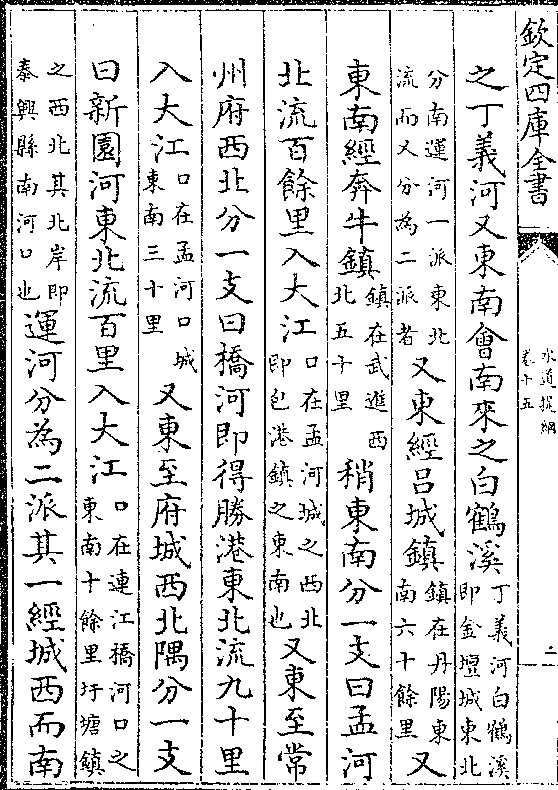 欽定四庫全書
水道提綱
卷十五
二
之丁義河又東南會南來之白鶴溪丁義河白鶴溪即金壇城東北
分南運河一派東北流而又分為二派者又東經呂城鎮鎮在丹陽東南六十餘里又
東南經奔牛鎮鎮在武進西北五十里稍東南分一支曰孟河
北流百餘里入大江口在孟河城之西北即包港鎮之東南也又東至常
州府西北分一支曰橋河即得勝港東北流九十里
入大江口在孟河口城東南三十里又東至府城西北隅分一支
曰新園河東北流百里入大江口在連江橋河口之東南十餘里圩塘鎮
之西北其北岸即泰興縣南河口也運河分為二派其一經城西而南